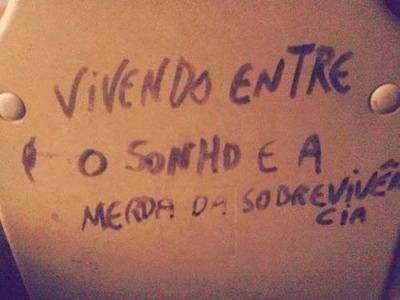 VIVENDO ENTRE
O SONHO E A
MERDA DA SOBREVIVÊN
CIA